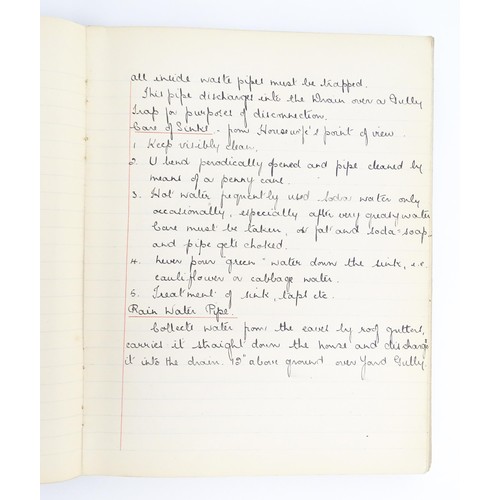 all inside waste pipes must be trapped.
This pipe discharges into the Drain over a Gully
Trap for purposes of disconnection.
Care of Sinks - from Housewife's point of view.
1. Keep visibly clean.
2. U bend periodically opened and pipe cleaned by
means of a penny cane.
3. Hot water frequently used soda water only
occasionally, especially after very greasy water
Care must be taken, or fat and soda = soap
and pipe gets choked.
4. Never pour "green" water down the sink, i.e.
cauliflower or cabbage water.
5. Treatment of sink, taps etc.
Rain Water Pipe.
Collects water from the eaves by roof gutters,
carries it straight down the house and discharges
it into the drain. 12" above ground over Yard Gully.